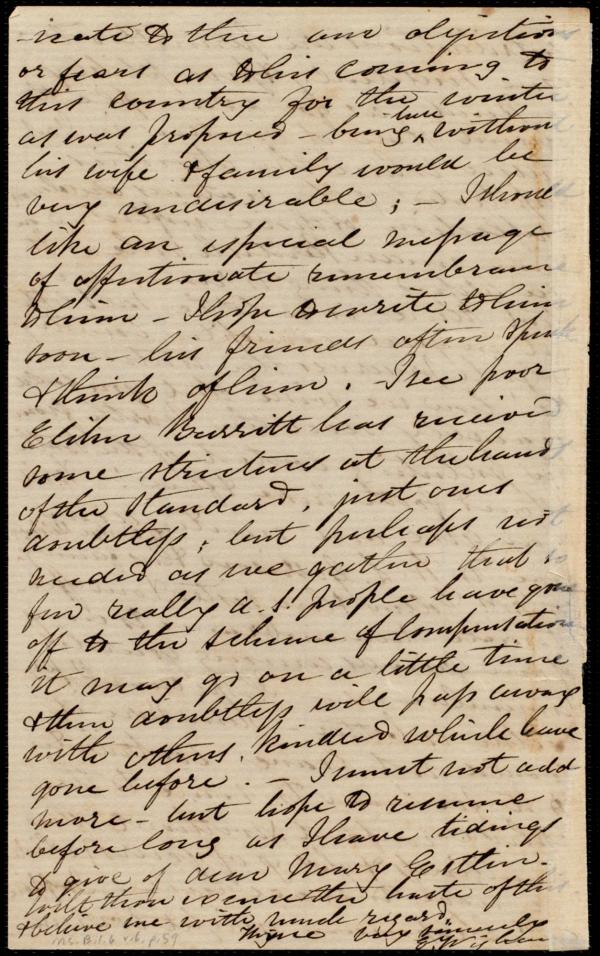 -nate to thee our objection
or fears as to his coming to
this country for the winter
as was proposed - being here without
his wife & family would be
very undesirable; - I should
like an especial message
of affectionate remembrance
to him - I hope to write to him
soon - his friends often speak
& think of him. - I see poor
Elihu Burritt has received
some strictures at the hand
of the Standard, just ones
doubtless; but perhaps not
needed as we gather that so
few really a. s. people have gone
off to the scheme of Compensation
it may go on a little time
& then doubtless will pass away
with others kindred which have
gone before. - I must not add
more - but hope to resume
before long as I have tidings
to give of dear Mary Estlin.
Wilt thou excuse the haste of this
& believe me with much regard,
Thine very sincerely
E. Wigham
Ms. B.1.6 v.6, p.59